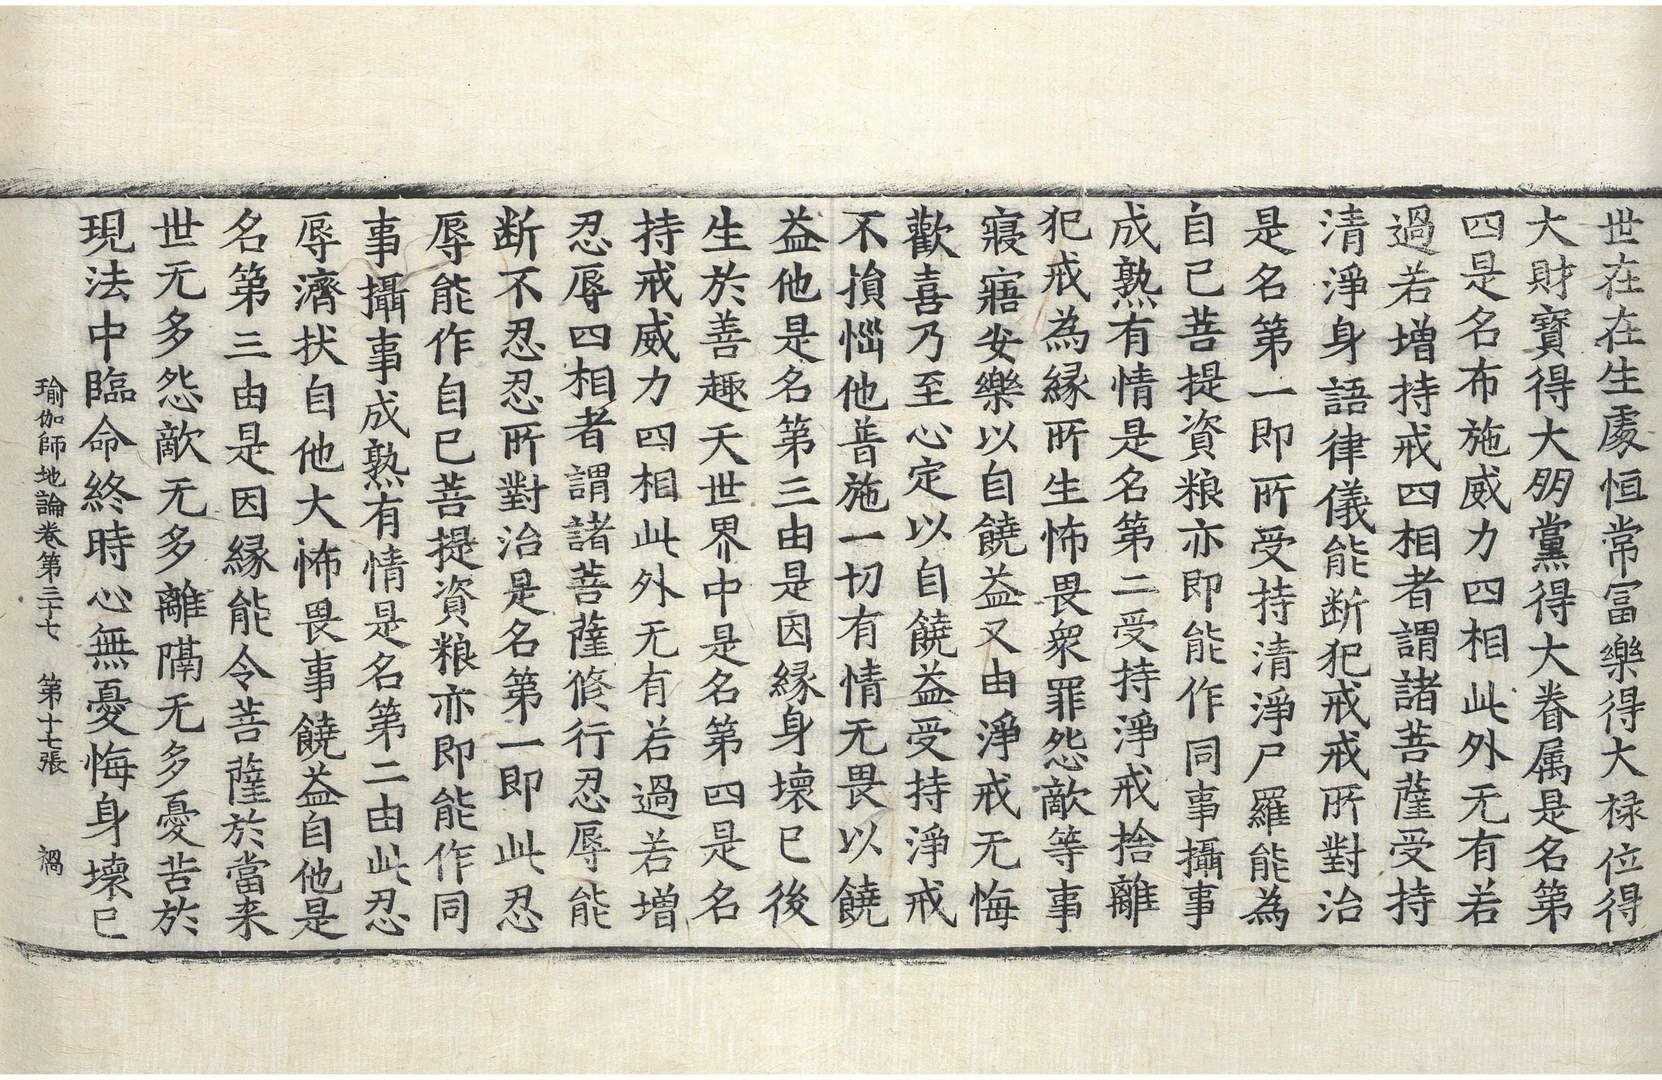 世在在生處恒常冨樂得大禄位得
大財寳得大朋黨得大眷属是名第
四是名布施威力四相此外无有若
過若增持戒四相者謂諸菩薩受持
清淨身語律儀能断犯戒戒所對治
是名第一即所受持清淨尸羅能為
自巳菩提資粮亦即能作同事攝事
成熟有情是名第二受持淨戒捨離
犯戒為縁所生怖畏衆罪怨敵等事
寢寤安樂以自饒益又由淨戒无悔
歡喜乃至心定以自饒益受持淨戒
不損惱他普施一切有情无畏以饒
益他是名第三由是因縁身壞巳後
生於善趣天世界中是名第四是名
持戒威力四相此外无有若過若增
忍辱四相者謂諸菩薩修行忍辱能
断不忍忍所對治是名第一即此忍
辱能作自巳菩提資粮亦即能作同
事攝事成熟有情是名第二由此忍
辱濟状自他大怖畏事饒益自他是
名第三由是因縁能令菩薩於當来
世无多怨敵无多離隔无多憂苦於
現法中臨命終時心無憂悔身壞巳
瑜伽師地論卷第三十七 第十七張 禍